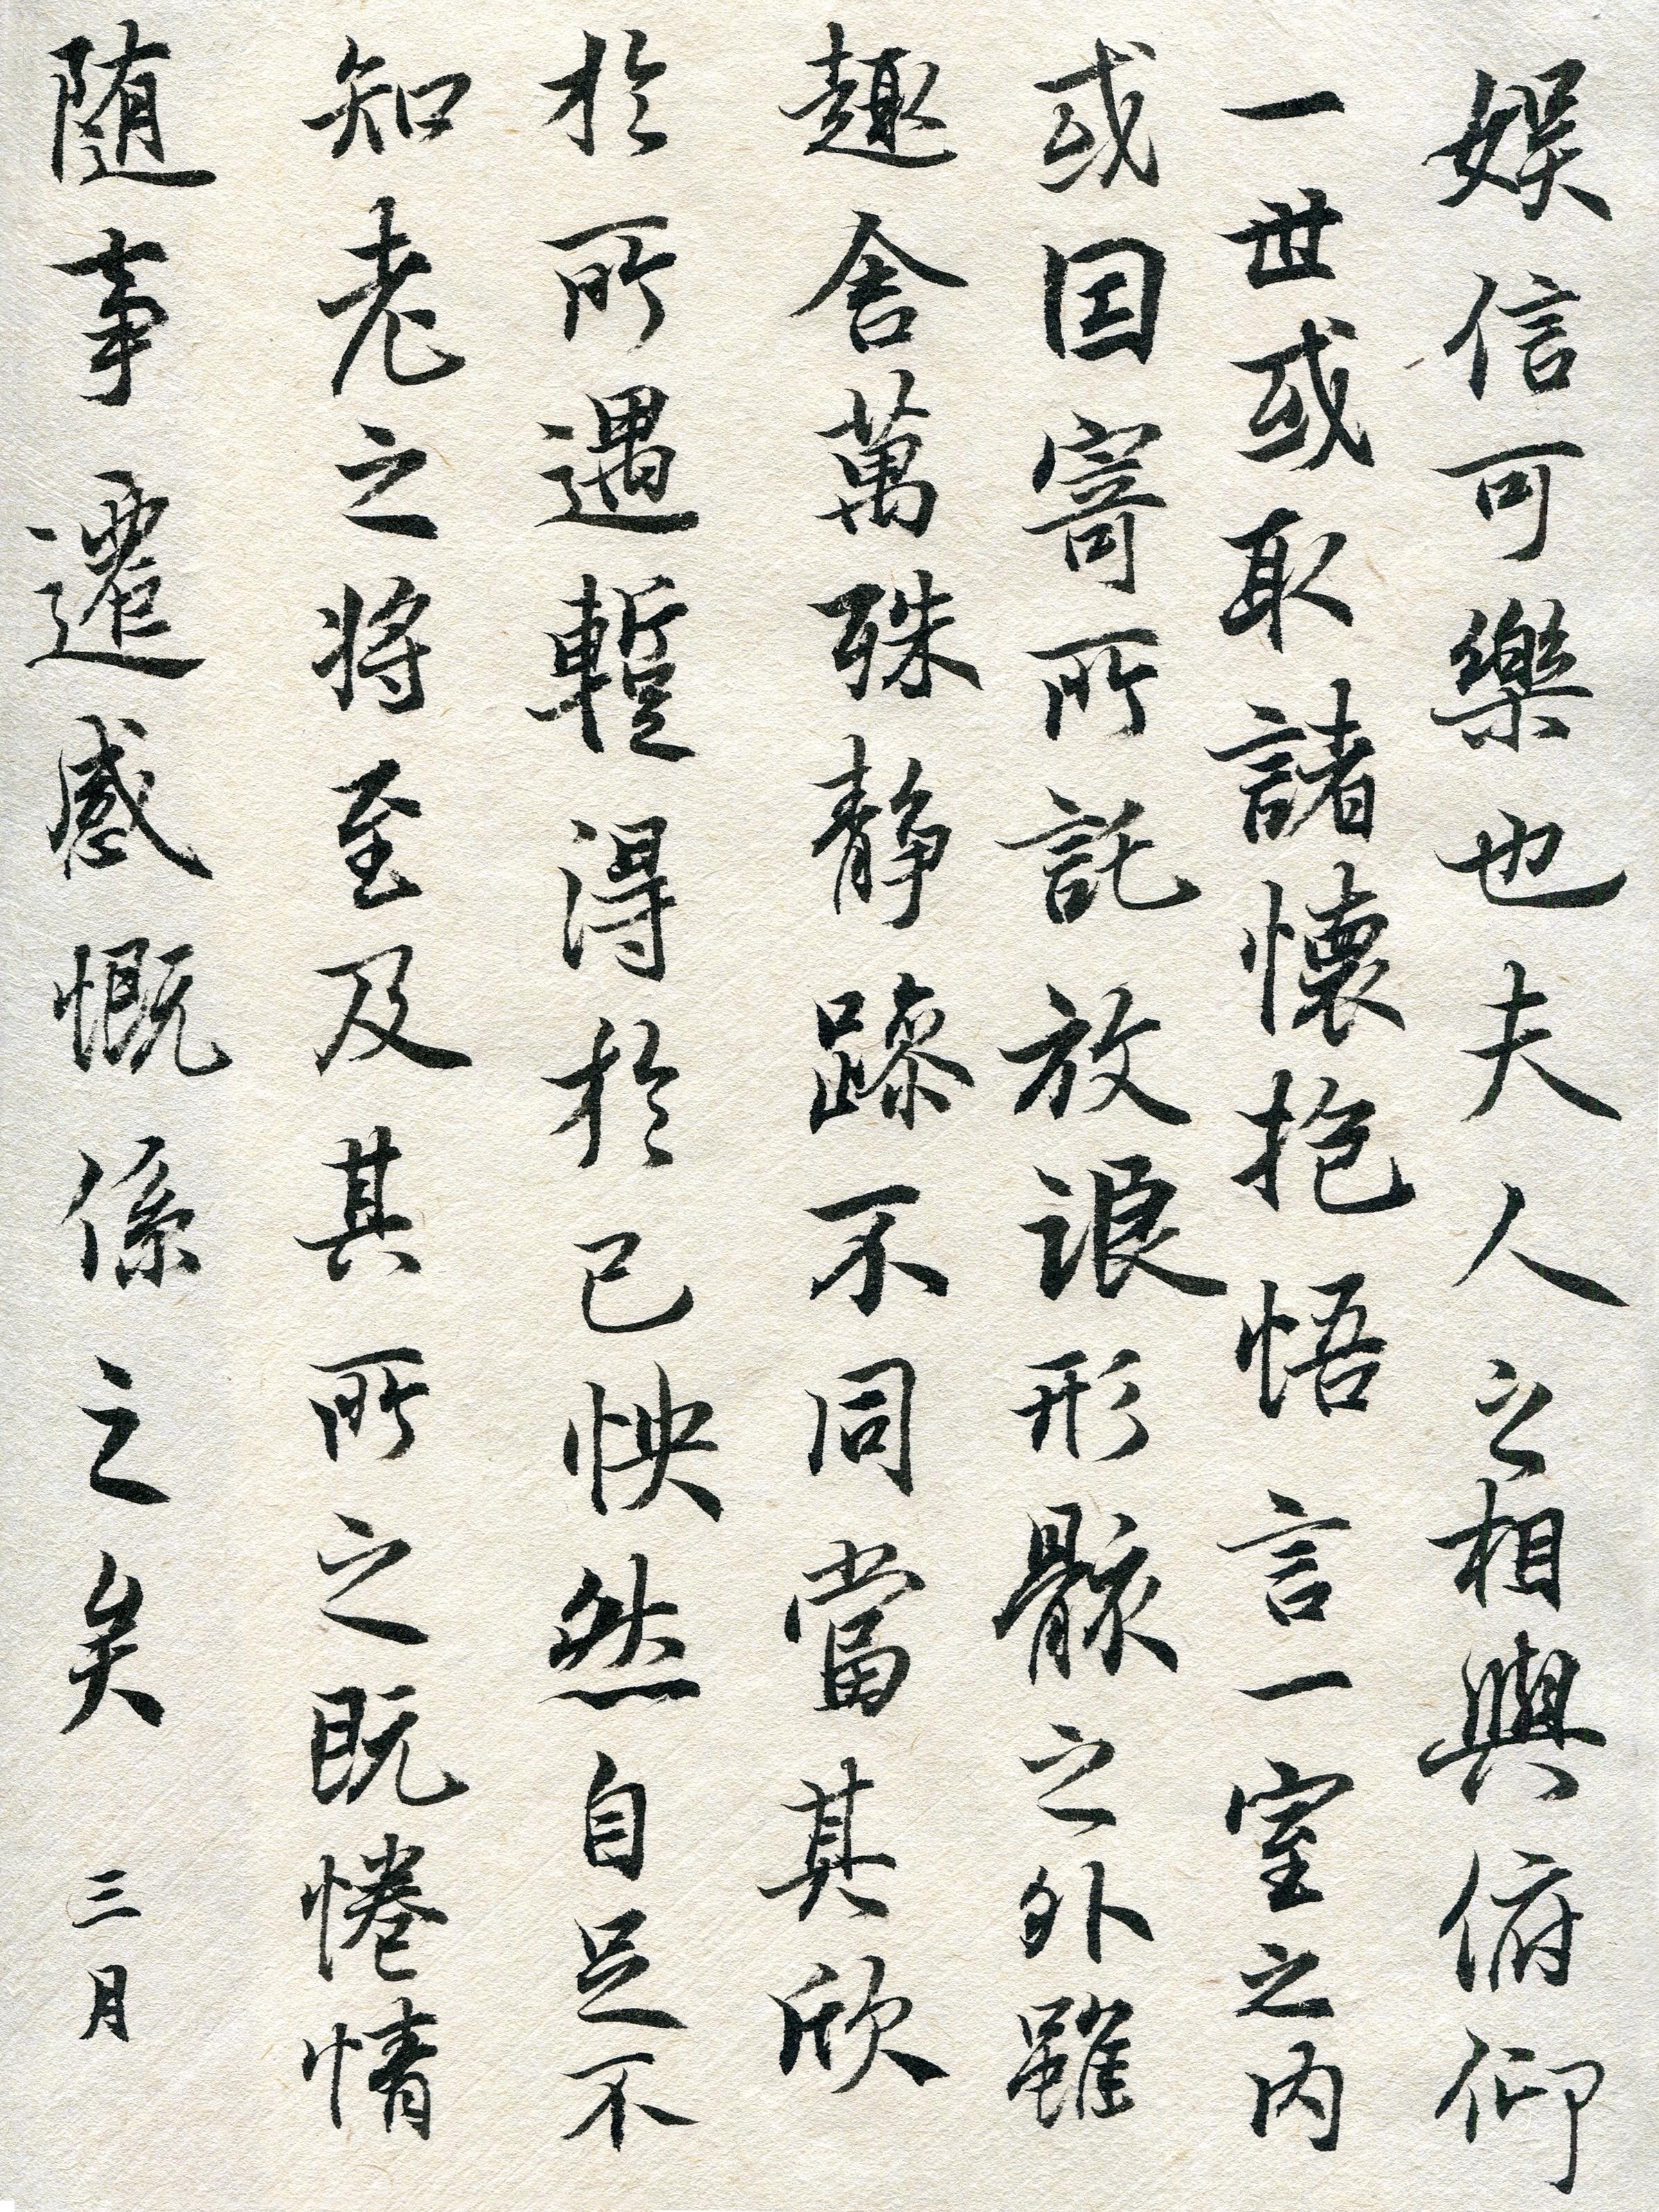 娯信可樂也夫人之相與俯仰
一世或取諸懷抱悟言一室之内
或因寄所託放浪形骸之外雖
趣舍萬殊静躁不同當其欣
於所遇蹔得於己怏然自足不
知老之将至及其所之既惓情
随事遷感慨係之矣 三月